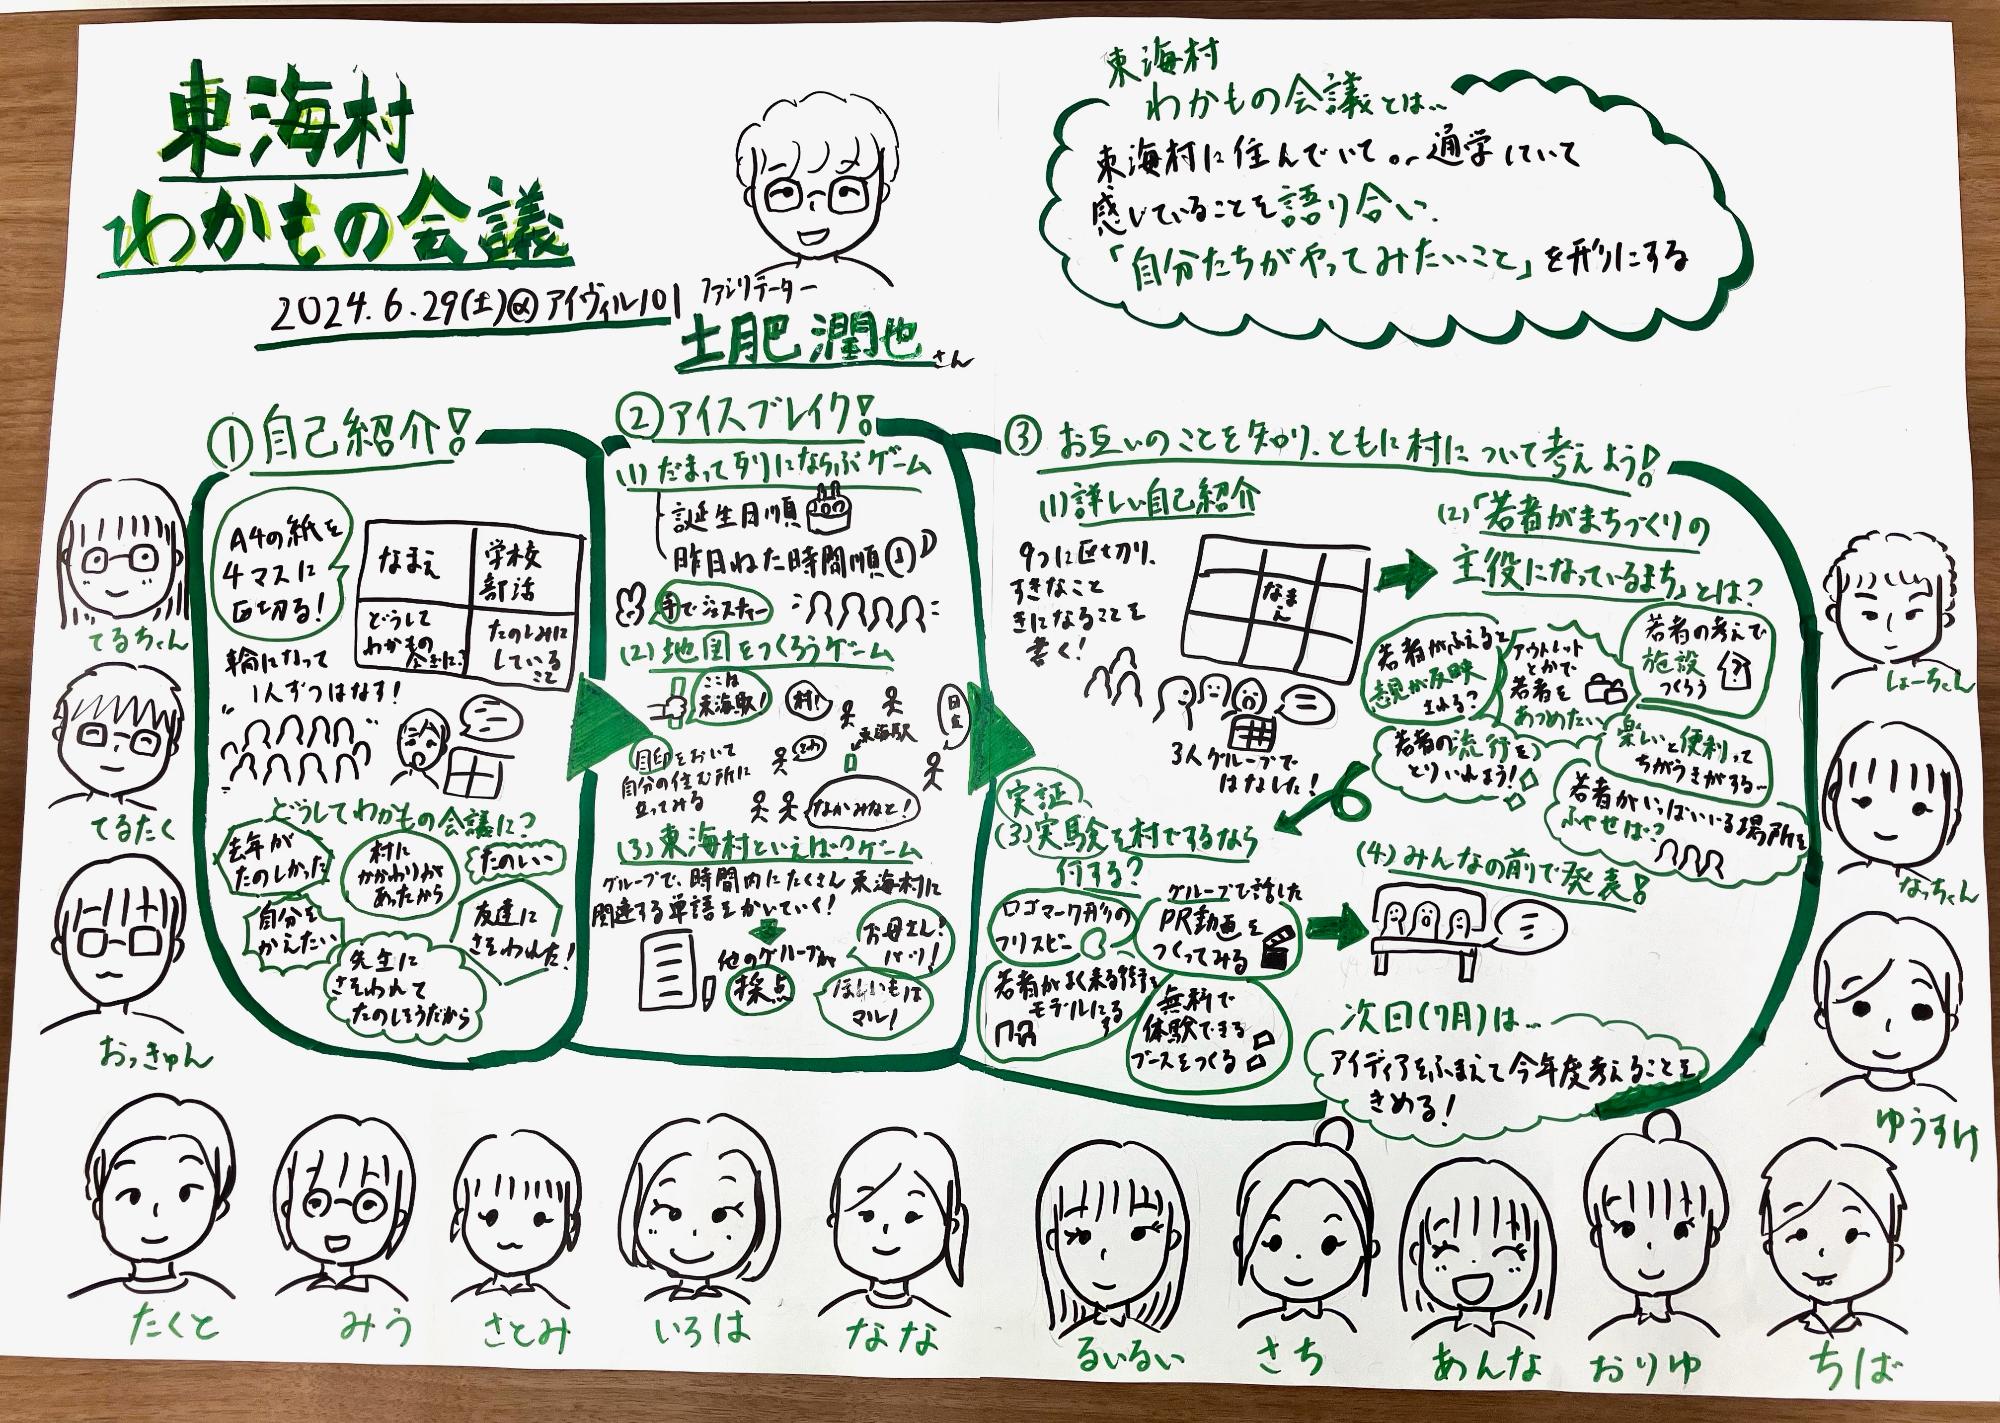 東海村
わかもの会議
2024.6.29(土)@アイヴィル101
ファシリテーター
土肥潤也さん
東海村
わかもの会議とは…
東海村に住んでいて or 通学していて
感じていることを語り合い、
「自分たちがやってみたいこと」を形にする
①自己紹介!
A4の紙を
4マスに
区切る!
なまえ
学校
部活
どうして
わかもの
会議に?
たのしみに
している
こと
輪になって
1人ずつはなす!
どうしてわかもの会議に?
去年が
たのしかった
村に
かかわりが
あったから
たのしい
自分を
かえたい
友達に
さそわれた!
先生に
さそわれて
たのしそうだから
②アイスブレイク!
(1)だまって列にならぶゲーム
誕生日順
昨日ねた時間順
手でジェスチャー
(2)地図をつくろうゲーム
ここは
東海駅!
村!
東海駅
日立
目印をおいて
自分の住む所に
立ってみる
なかみなと!
(3)東海村といえば?ゲーム
グループで、時間内にたくさん東海村に
関連する単語をかいていく!
他のグループが
採点
お母さん!
バツ!
ほしいもは
マル!
③お互いのことを知り、ともに村について考えよう!
(1)詳しい自己紹介
9つに区切り、
すきなこと
きになることを
書く!
なまえ
3人グループで
はなした!
(2)「若者がまちづくりの
主役になっているまち」とは?
若者がふえると
意見が反映
される?
アウトレット
とかで
若者を
あつめたい
若者の考えで
施設
つくろう
若者の流行を
とりいれよう!
楽しいと便利って
ちがうきがする…
若者がいっぱいいる場所を
ふやせば?
実証
(3)実験を村でするなら
何する?
ロゴマーク形の
フリスビー
グループで話した
PR動画を
つくってみる
若者がよく来る街を
モデルにする
無料で
体験できる
ブースをつくる
(4)みんなの前で発表!
次回(7月)は…
アイディアをふまえて今年度考えることを
きめる!
てるちゃん
てるたく
おっきゅん
しょーちゃん
なっちゃん
ゆうすけ
たくと
みう
さとみ
いろは
なな
るいるい
さち
あんな
おりゆ
ちば